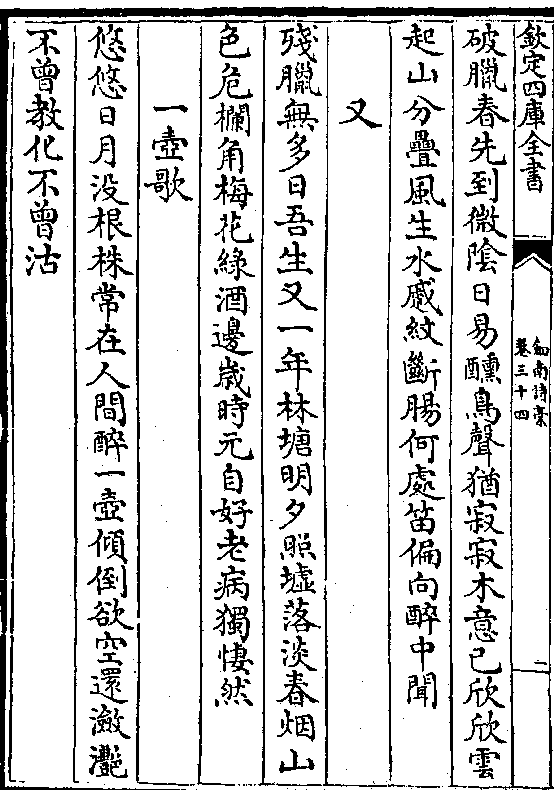 欽定四庫全書
劍南詩稾
卷三十四
二
破臘春先到微陰日易醺鳥聲猶寂寂木意已欣欣雲
起山分疊風生水蹙紋斷腸何處笛偏向醉中聞
又
殘臘無多日吾生又一年林塘明夕照墟落淡春烟山
色危欄角梅花綠酒邊歳時元自好老病獨悽然
一壺歌
悠悠日月没根株常在人間醉一壺傾倒欲空還瀲灧
不曾教化不曾沽